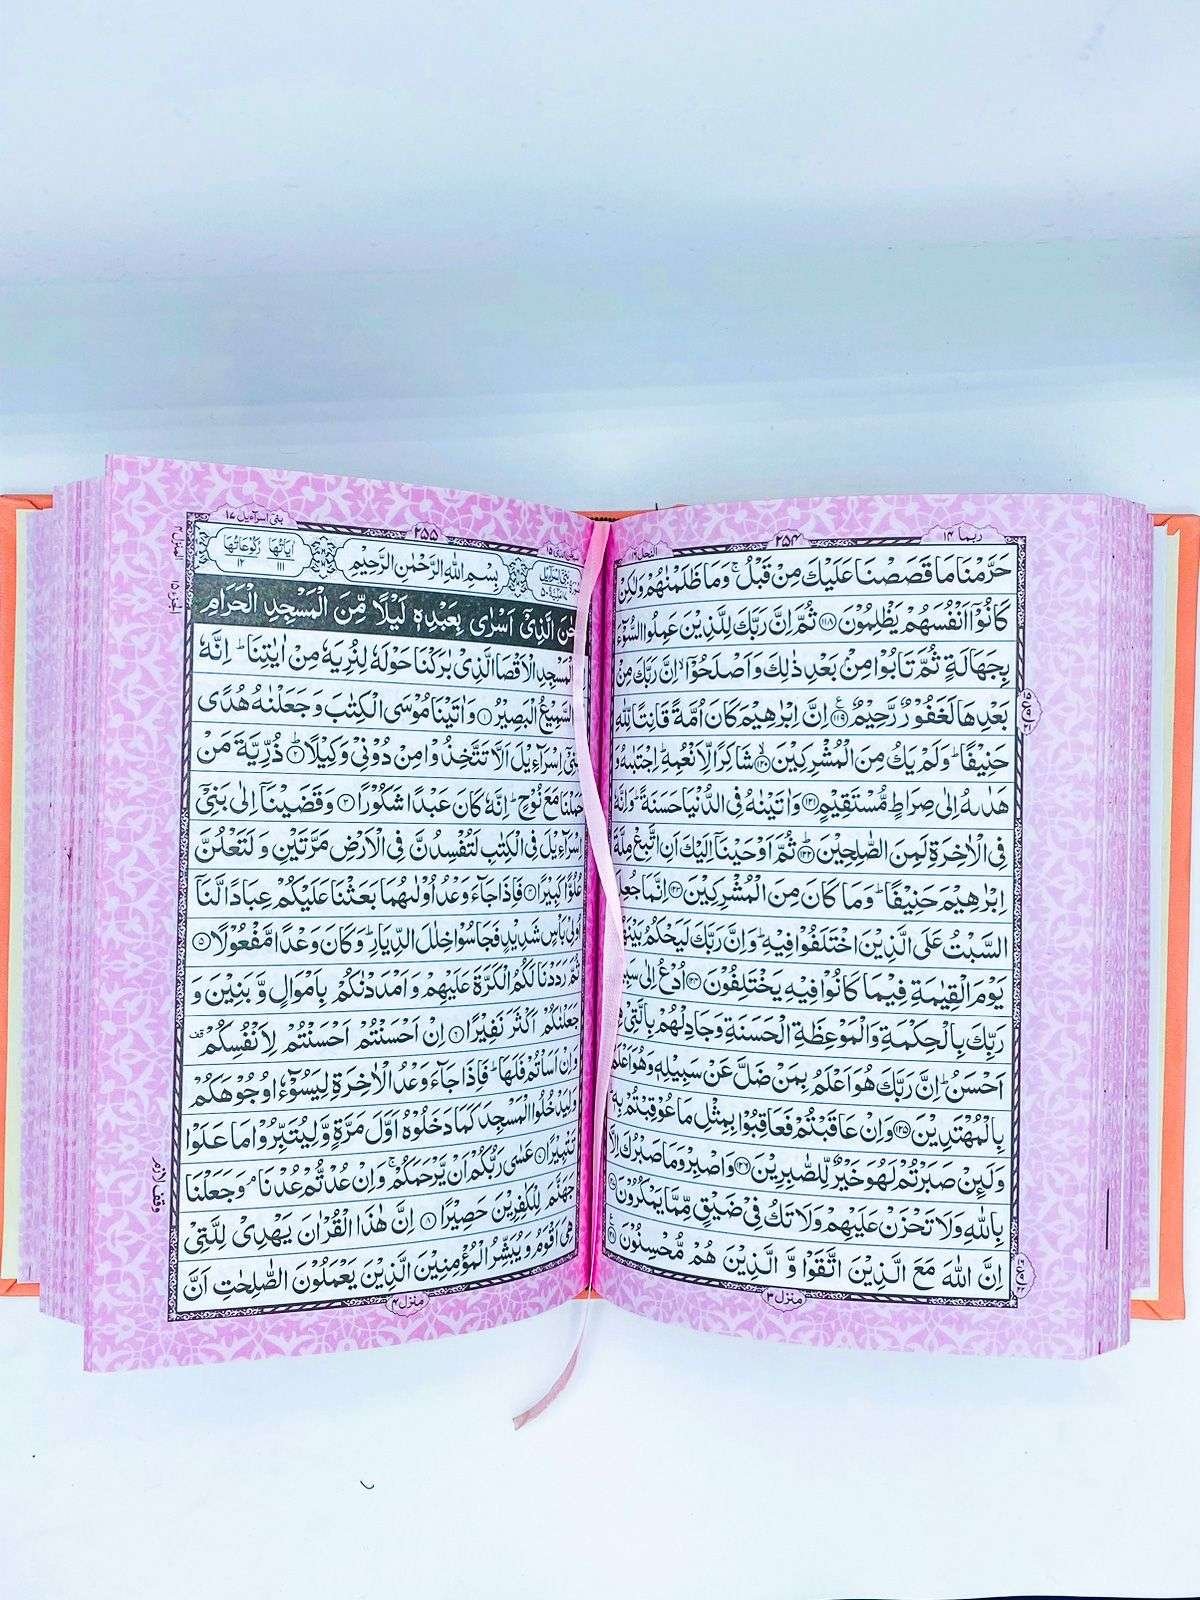 ربما ١٤
٢٥٤
النحل ١٦
حَرَّمْنَا مَا قَصَصْنَا عَلَيْكَ مِنْ قَبْلُ ۚ وَمَا ظَلَمْنٰهُمْ وَلٰكِنْ
كَانُوْٓا اَنْفُسَهُمْ يَظْلِمُوْنَ ﴿١١٨﴾ ثُمَّ اِنَّ رَبَّكَ لِلَّذِيْنَ عَمِلُوا السُّوْٓءَ
بِجَهَالَةٍ ثُمَّ تَابُوْا مِنْۢ بَعْدِ ذٰلِكَ وَاَصْلَحُوْٓا ۙ اِنَّ رَبَّكَ مِنْۢ
بَعْدِهَا لَغَفُوْرٌ رَّحِيْمٌ ﴿١١٩﴾ اِنَّ اِبْرٰهِيْمَ كَانَ اُمَّةً قَانِتًا لِّلّٰهِ
حَنِيْفًا ؕ وَلَمْ يَكُ مِنَ الْمُشْرِكِيْنَ ﴿١٢٠﴾ شَاكِرًا لِّاَنْعُمِهٖ ؕ اِجْتَبٰىهُ وَ
هَدٰىهُ اِلٰى صِرَاطٍ مُّسْتَقِيْمٍ ﴿١٢١﴾ وَاٰتَيْنٰهُ فِى الدُّنْيَا حَسَنَةً ؕ وَاِنَّهٗ
فِى الْاٰخِرَةِ لَمِنَ الصّٰلِحِيْنَ ﴿١٢٢﴾ ثُمَّ اَوْحَيْنَآ اِلَيْكَ اَنِ اتَّبِعْ مِلَّةَ
اِبْرٰهِيْمَ حَنِيْفًا ؕ وَمَا كَانَ مِنَ الْمُشْرِكِيْنَ ﴿١٢٣﴾ اِنَّمَا جُعِلَ
السَّبْتُ عَلَى الَّذِيْنَ اخْتَلَفُوْا فِيْهِ ؕ وَاِنَّ رَبَّكَ لَيَحْكُمُ بَيْنَهُمْ
يَوْمَ الْقِيٰمَةِ فِيْمَا كَانُوْا فِيْهِ يَخْتَلِفُوْنَ ﴿١٢٤﴾ اُدْعُ اِلٰى سَبِيْلِ
رَبِّكَ بِالْحِكْمَةِ وَالْمَوْعِظَةِ الْحَسَنَةِ وَجَادِلْهُمْ بِالَّتِيْ هِيَ
اَحْسَنُ ؕ اِنَّ رَبَّكَ هُوَ اَعْلَمُ بِمَنْ ضَلَّ عَنْ سَبِيْلِهٖ وَهُوَ اَعْلَمُ
بِالْمُهْتَدِيْنَ ﴿١٢٥﴾ وَاِنْ عَاقَبْتُمْ فَعَاقِبُوْا بِمِثْلِ مَا عُوْقِبْتُمْ بِهٖ ؕ
وَلَىِٕنْ صَبَرْتُمْ لَهُوَ خَيْرٌ لِّلصّٰبِرِيْنَ ﴿١٢٦﴾ وَاصْبِرْ وَمَا صَبْرُكَ اِلَّا
بِاللّٰهِ وَلَا تَحْزَنْ عَلَيْهِمْ وَلَا تَكُ فِيْ ضَيْقٍ مِّمَّا يَمْكُرُوْنَ ﴿١٢٧﴾
اِنَّ اللّٰهَ مَعَ الَّذِيْنَ اتَّقَوْا وَّ الَّذِيْنَ هُمْ مُّحْسِنُوْنَ ﴿١٢٨﴾
منزل ٣
٢٥٥
بنیٓ اسرآءیل ١٧
بِسْمِ اللّٰهِ الرَّحْمٰنِ الرَّحِيْمِ
اٰيَاتُهَا ١١١ رُكُوْعَاتُهَا ١٢
سُبْحٰنَ الَّذِيْٓ اَسْرٰى بِعَبْدِهٖ لَيْلًا مِّنَ الْمَسْجِدِ الْحَرَامِ
الْمَسْجِدِ الْاَقْصَا الَّذِيْ بٰرَكْنَا حَوْلَهٗ لِنُرِيَهٗ مِنْ اٰيٰتِنَا ؕ اِنَّهٗ
السَّمِيْعُ الْبَصِيْرُ ﴿١﴾ وَاٰتَيْنَا مُوْسَى الْكِتٰبَ وَجَعَلْنٰهُ هُدًى
بَنِيْٓ اِسْرَآءِيْلَ اَلَّا تَتَّخِذُوْا مِنْ دُوْنِيْ وَكِيْلًا ﴿٢﴾ ذُرِّيَّةَ مَنْ
حَمَلْنَا مَعَ نُوْحٍ ؕ اِنَّهٗ كَانَ عَبْدًا شَكُوْرًا ﴿٣﴾ وَقَضَيْنَآ اِلٰى بَنِيْٓ
اِسْرَآءِيْلَ فِى الْكِتٰبِ لَتُفْسِدُنَّ فِى الْاَرْضِ مَرَّتَيْنِ وَلَتَعْلُنَّ
عُلُوًّا كَبِيْرًا ﴿٤﴾ فَاِذَا جَآءَ وَعْدُ اُوْلٰىهُمَا بَعَثْنَا عَلَيْكُمْ عِبَادًا لَّنَآ
اُولِيْ بَاْسٍ شَدِيْدٍ فَجَاسُوْا خِلٰلَ الدِّيَارِ ؕ وَكَانَ وَعْدًا مَّفْعُوْلًا ﴿٥﴾
ثُمَّ رَدَدْنَا لَكُمُ الْكَرَّةَ عَلَيْهِمْ وَاَمْدَدْنٰكُمْ بِاَمْوَالٍ وَّبَنِيْنَ وَ
جَعَلْنٰكُمْ اَكْثَرَ نَفِيْرًا ﴿٦﴾ اِنْ اَحْسَنْتُمْ اَحْسَنْتُمْ لِاَنْفُسِكُمْ قف
وَاِنْ اَسَاْتُمْ فَلَهَا ؕ فَاِذَا جَآءَ وَعْدُ الْاٰخِرَةِ لِيَسُوْٓءٗا وُجُوْهَكُمْ
وَلِيَدْخُلُوا الْمَسْجِدَ كَمَا دَخَلُوْهُ اَوَّلَ مَرَّةٍ وَّلِيُتَبِّرُوْا مَا عَلَوْا
تَتْبِيْرًا ﴿٧﴾ عَسٰى رَبُّكُمْ اَنْ يَّرْحَمَكُمْ ۚ وَاِنْ عُدْتُّمْ عُدْنَا ۘ وَجَعَلْنَا
جَهَنَّمَ لِلْكٰفِرِيْنَ حَصِيْرًا ﴿٨﴾ اِنَّ هٰذَا الْقُرْاٰنَ يَهْدِيْ لِلَّتِيْ
هِيَ اَقْوَمُ وَيُبَشِّرُ الْمُؤْمِنِيْنَ الَّذِيْنَ يَعْمَلُوْنَ الصّٰلِحٰتِ اَنَّ
منزل ٤
وقف لازم